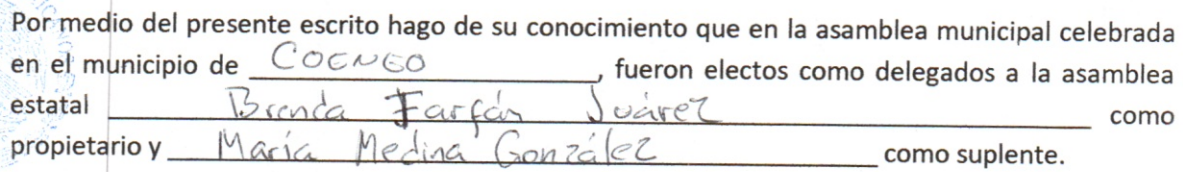 Por medio del presente escrito hago de su conocimiento que en la asamblea municipal celebrada
en el municipio de COENEO, fueron electos como delegados a la asamblea
estatal Brenda Farfán Juárez como
propietario y María Medina González como suplente.